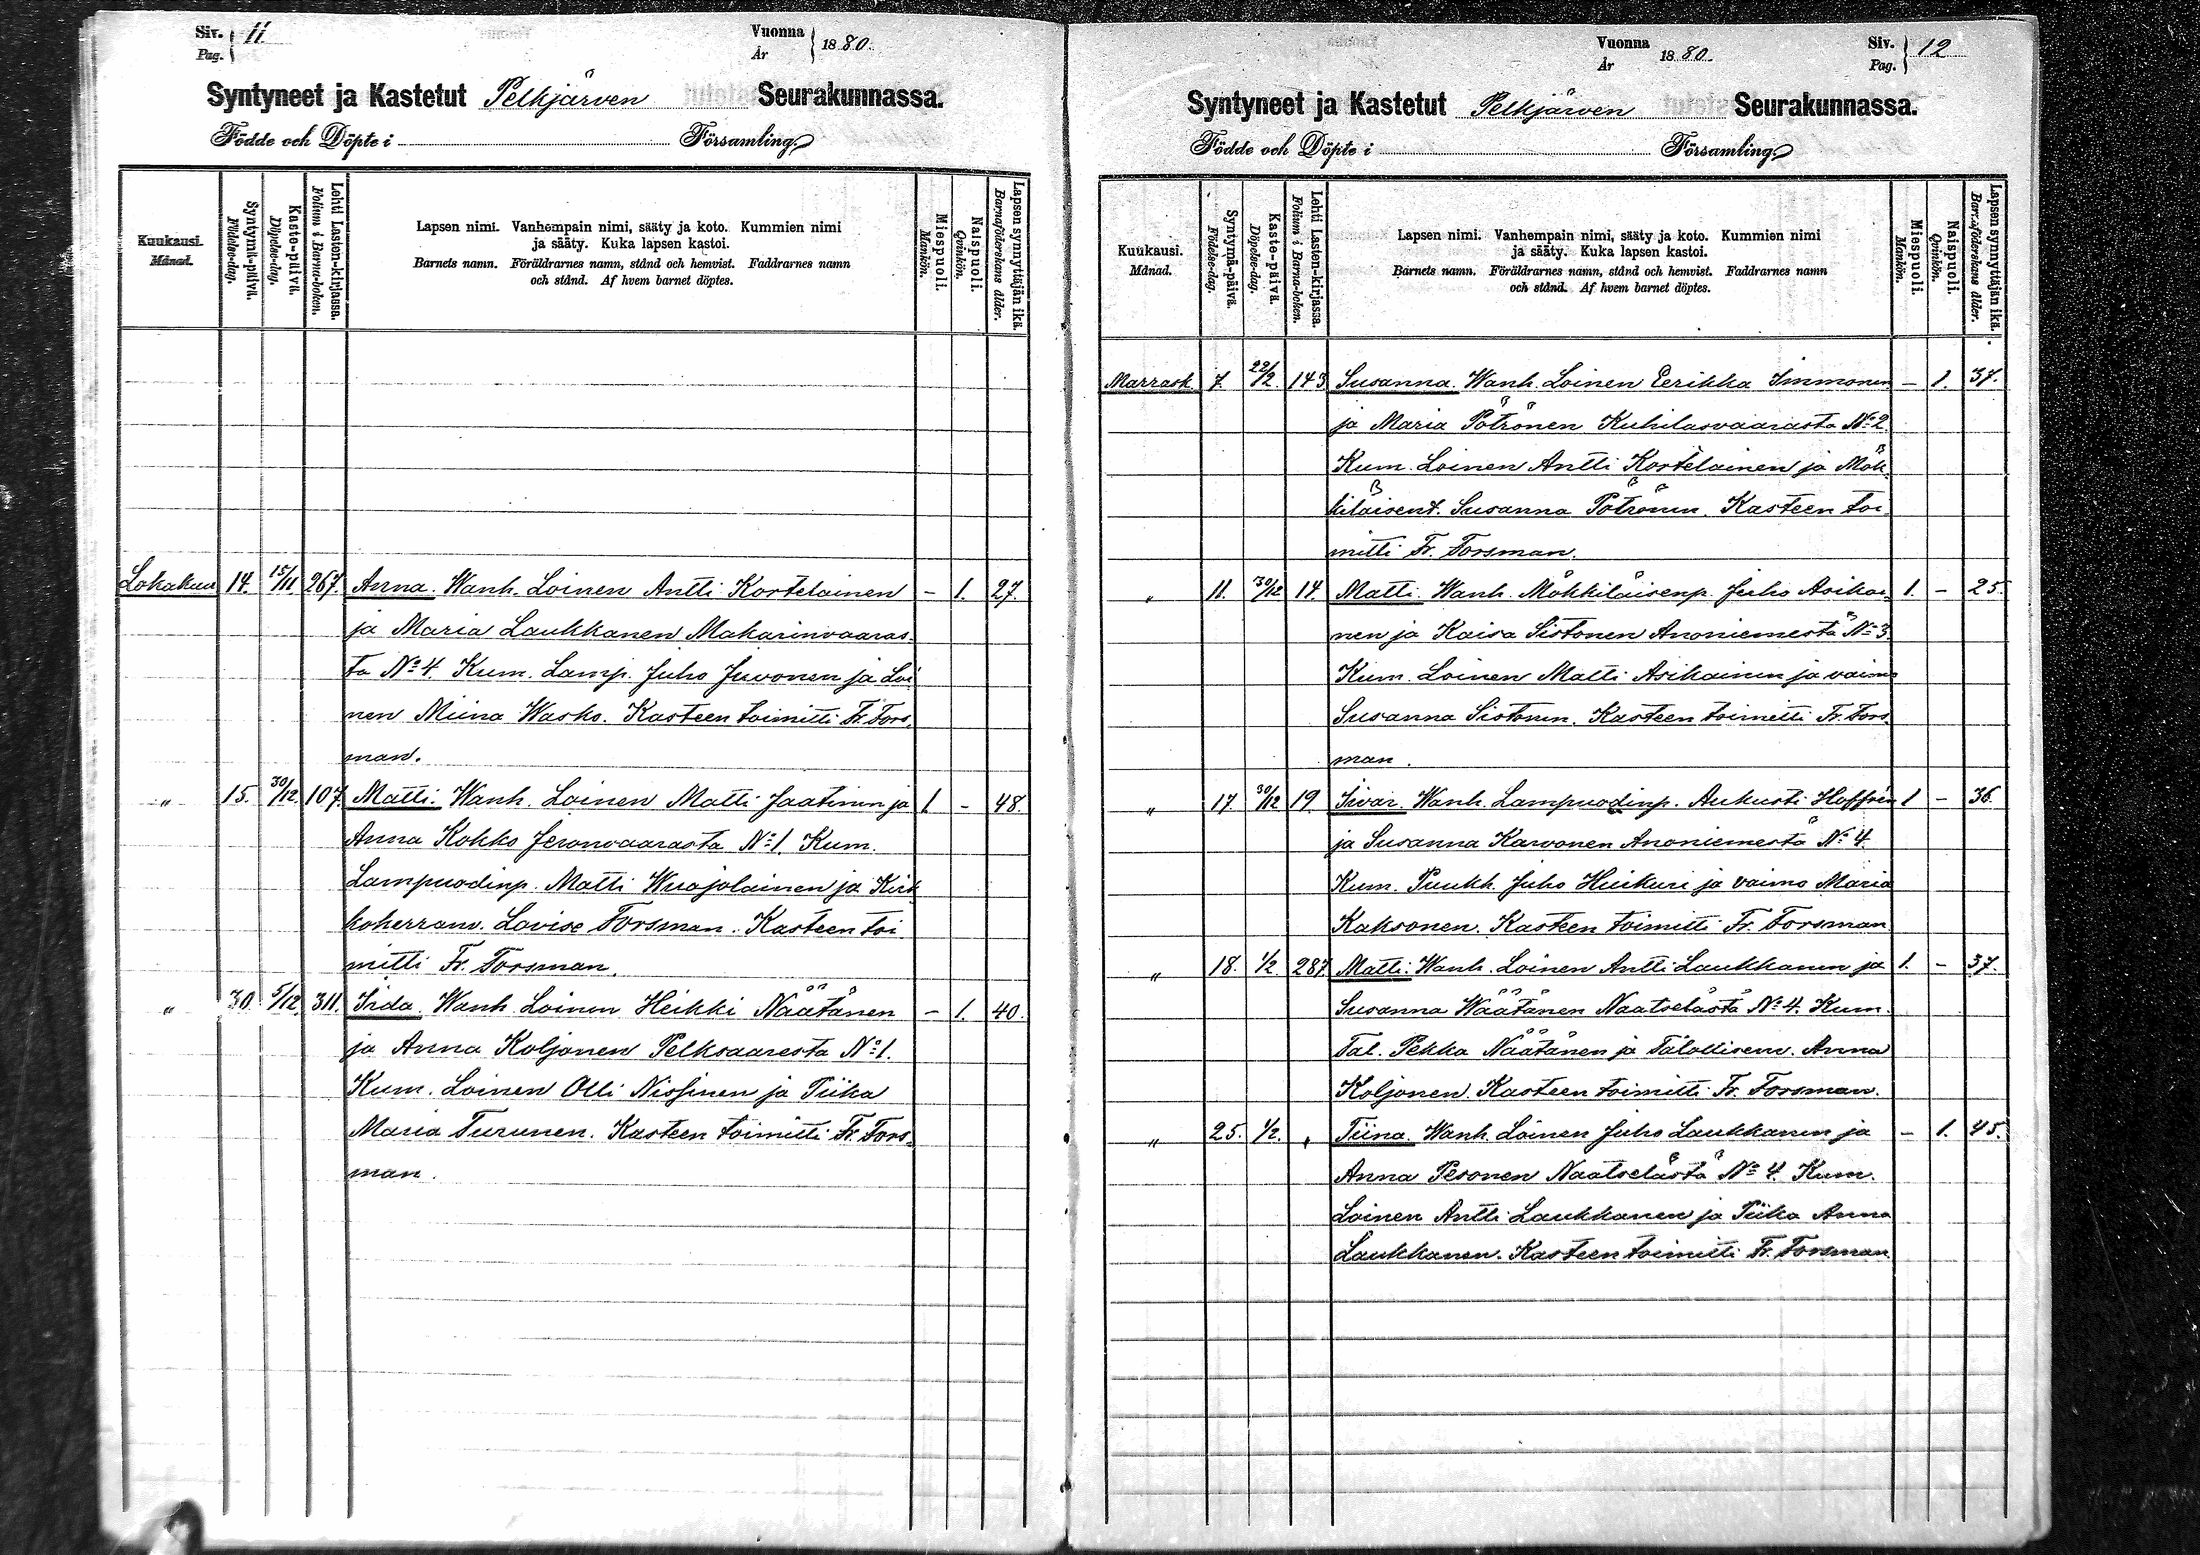 Siv. 11.
Pag.
Vuonna
År 1880.
Syntyneet ja Kastetut Pelkjärven Seurakunnassa.
Födde och Döpte i Församling.
Kuukausi.
Månad.
Syntymä-päivä.
Födelse-dag.
Kaste-päivä.
Döpelse-dag.
Lehti Lasten-kirjassa.
Folium i Barna-boken.
Lapsen nimi. Vanhempain nimi, sääty ja koto. Kummien nimi
ja sääty. Kuka lapsen kastoi.
Barnets namn. Föräldrarnes namn, stånd och hemvist. Faddrarnes namn
och stånd. Af hvem barnet döptes.
Miespuoli.
Mankön.
Naispuoli.
Qvinkön.
Lapsen synnyttäjän ikä.
Barnaföderskans ålder.
Lokakuu 14. 15/11 267. Anna. Wanh. Loinen Antti Kortelainen – 1. 27.
ja Maria Laukkanen Makarinvaaras-
ta No 4 Kum. Lamp. Juho Juvonen ja Loi
nen Miina Wasko. Kasteen toimitti Fr. Fors-
man.
„ 15. 30/12. 107. Matti. Wanh. Loinen Matti Jaatinen ja 1. – 48.
Anna Kokko Jeronvaarasta No 1. Kum.
Lampuodinp. Matti Wuojolainen ja Kirk
koherranv. Lovise Forsman. Kasteen toi
mitti Fr. Forsman.
„ 30. 5/12. 311. Iida. Wanh. Loinen Heikki Näätänen – 1. 40.
ja Anna Koljonen Pelksaaresta No 1.
Kum. Loinen Olli Nissinen ja Piika
Maria Turunen. Kasteen toimitti Fr. Fors-
man.
Vuonna
År 1880.
Siv. 12
Pag.
Syntyneet ja Kastetut Pelkjärven Seurakunnassa.
Födde och Döpte i Församling.
Kuukausi.
Månad.
Syntymä-päivä.
Födelse-dag.
Kaste-päivä.
Döpelse-dag.
Lehti Lasten-kirjassa.
Folium i Barna-boken.
Lapsen nimi. Vanhempain nimi, sääty ja koto. Kummien nimi
ja sääty. Kuka lapsen kastoi.
Barnets namn. Föräldrarnes namn, stånd och hemvist. Faddrarnes namn
och stånd. Af hvem barnet döptes.
Miespuoli.
Mankön.
Naispuoli.
Qvinkön.
Lapsen synnyttäjän ikä.
Barnaföderskans ålder.
Marrask. 7. 22/12. 143 Susanna. Wanh. Loinen Eerikka Immonen – 1. 37.
ja Maria Pötrönen Kuhilasvaarasta No 2
Kum. Loinen Antti Kortelainen ja Mök-
kiläisent. Susanna Pötrönen. Kasteen toi-
mitti Fr. Forsman.
„ 11. 30/12 14. Matti. Wanh. Mökkiläisenp. Juho Asikai- 1. – 25.
nen ja Kaisa Sistonen Anoniemestä No 3.
Kum. Loinen Matti Asikainen ja vaimo
Susanna Sistonen. Kasteen toimitti Fr. Fors-
man.
„ 17. 30/12 19. Iivar. Wanh. Lampuodinp. Aukusti Hoffrén 1 – 36.
ja Susanna Karvonen Anoniemestä No 4.
Kum. Puukh. Juho Huikuri ja vaimo Maria
Kaksonen. Kasteen toimitti Fr. Forsman
„ 18. 1/2 287 Matti. Wanh. Loinen Antti Laukkanen ja 1. – 37.
Susanna Wäätänen Naatselästä No 4. Kum.
Tal. Pekka Näätänen ja Talollisenv. Anna
Koljonen. Kasteen toimitti Fr. Forsman.
„ 25. 1/2. „ Tiina. Wanh. Loinen Juho Laukkanen ja – 1. 45.
Anna Pesonen Naatselästä No 4. Kum.
Loinen Antti Laukkanen ja Piika Anna
Laukkanen. Kasteen toimitti Fr. Forsman.